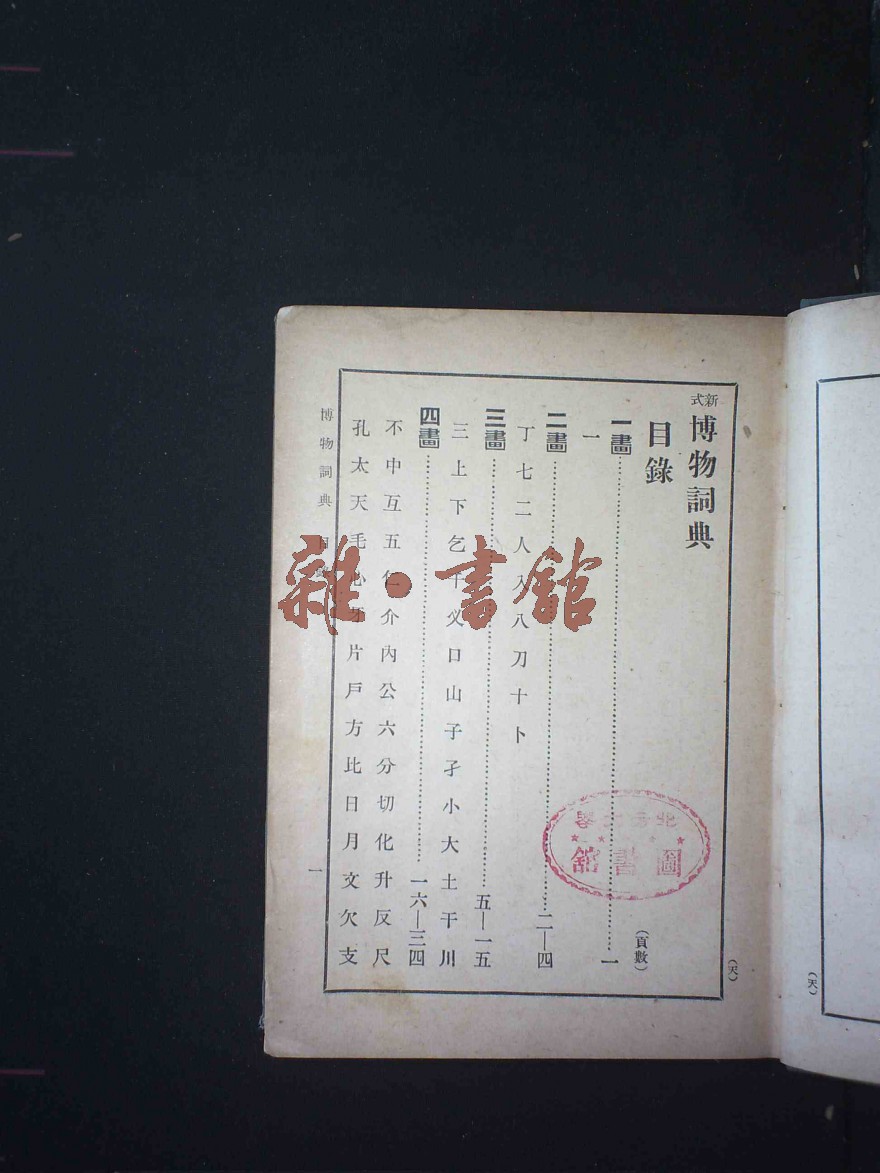 新式 博物詞典
目錄
(頁數)
一畫……一
一
二畫……二—四
丁七二人入八刀十卜
三畫……五—一五
三上下乞千义口山子孑小大土干川
四畫……一六—三四
不中互五仁介內公六分切化升反尺
孔太天毛心牙片戶方比日月文欠支
博物詞典 目
一
(天)
(天)
雜·書館
圖書館